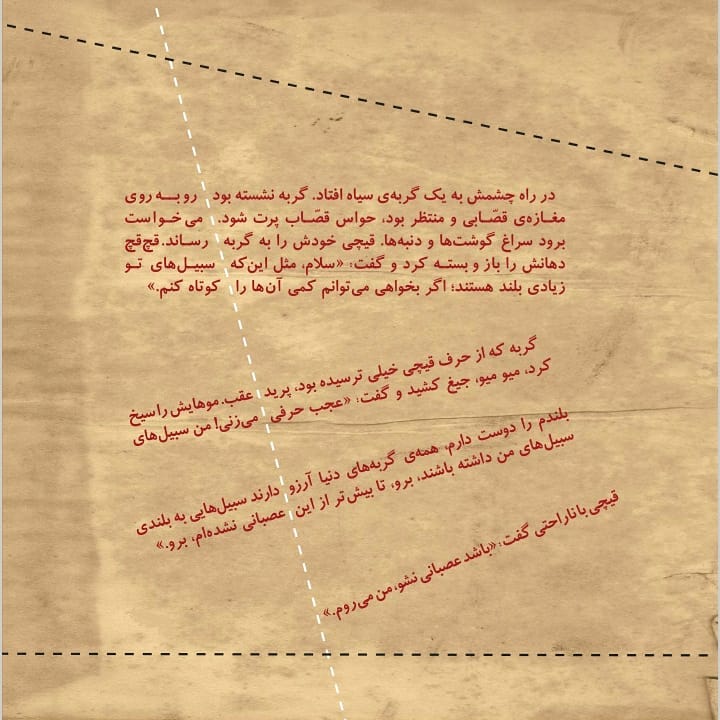 در راه چشمش به یک گربه‌ی سیاه افتاد. گربه نشسته بود رو به روی
مغازه‌ی قصّابی و منتظر بود، حواس قصّاب پرت شود. می‌خواست
برود سراغ گوشت‌ها و دنبه‌ها. قیچی خودش را به گربه رساند. قچ‌قچ
دهانش را باز و بسته کرد و گفت: «سلام، مثل این‌که سبیل‌های تو
زیادی بلند هستند؛ اگر بخواهی می‌توانم کمی آن‌ها را کوتاه کنم.»
گربه که از حرف قیچی خیلی ترسیده بود، پرید عقب. موهایش را سیخ
کرد، میو میو، جیغ کشید و گفت: «عجب حرفی می‌زنی! من سبیل‌های
بلندم را دوست دارم، همه‌ی گربه‌های دنیا آرزو دارند سبیل‌هایی به بلندی
سبیل‌های من داشته باشند، برو، تا بیش‌تر از این عصبانی نشده‌ام، برو.»
قیچی با ناراحتی گفت: «باشد عصبانی نشو، من می‌روم.»